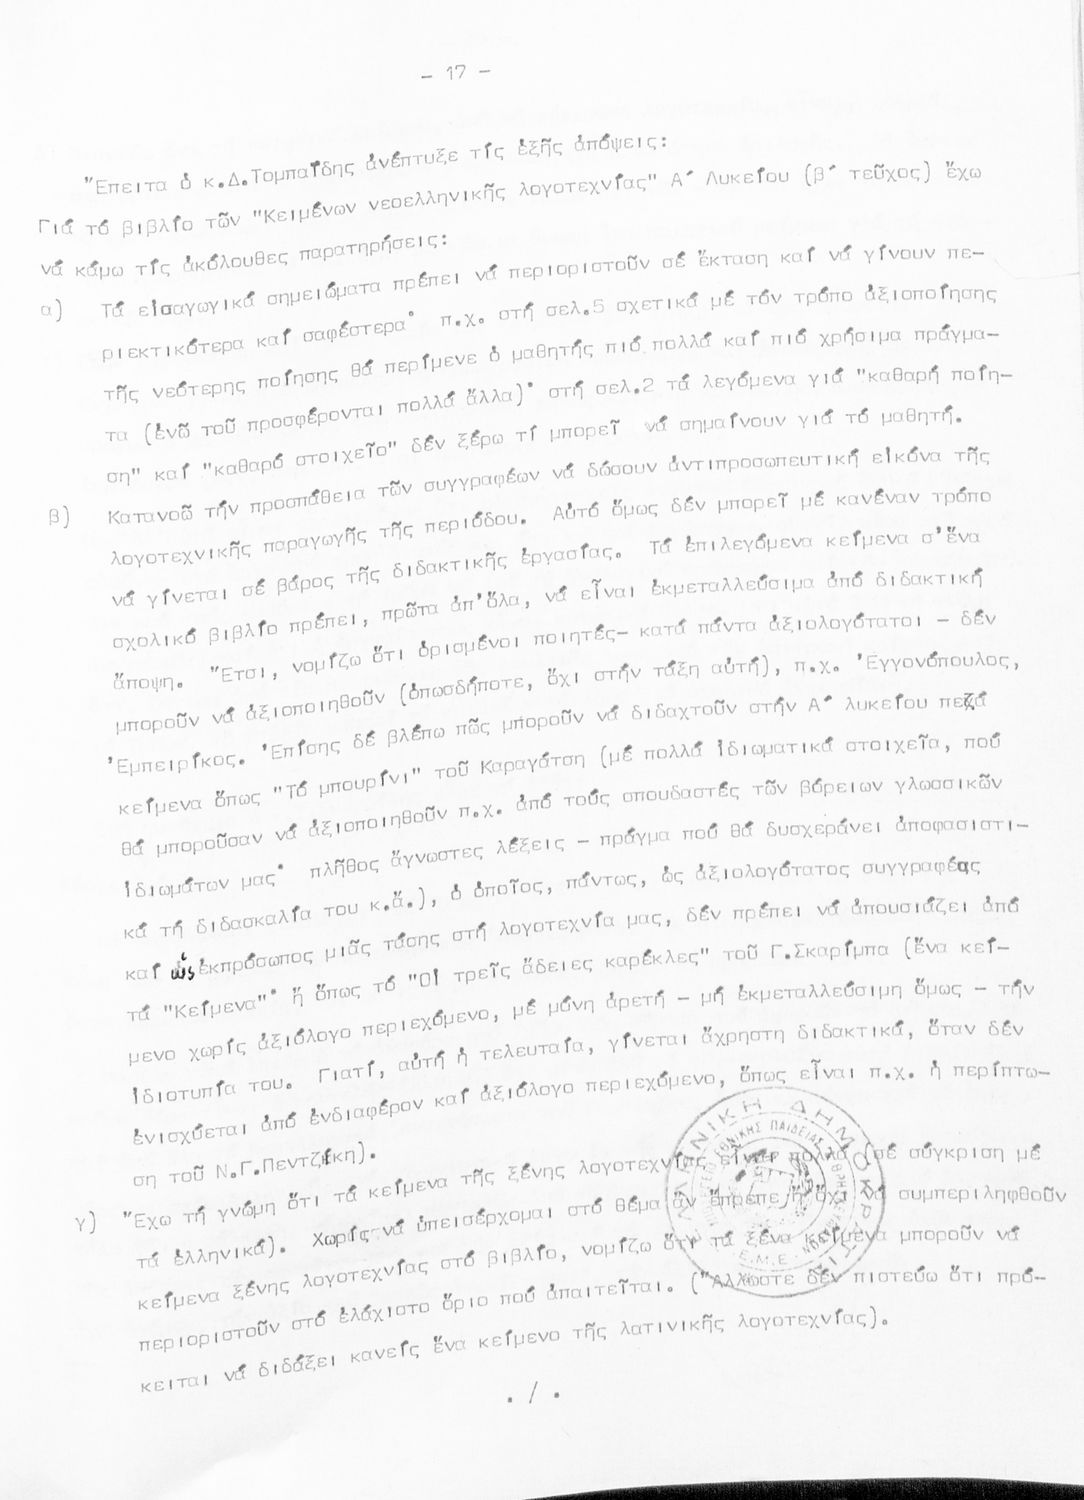 - 17 -
"Επειτα ὁ κ.Δ.Τομπαΐδης ἀνέπτυξε τίς ἑξῆς ἀπόψεις:
Γιά τό βιβλίο τῶν "Κειμένων νεοελληνικῆς λογοτεχνίας" Α΄ Λυκείου (β΄ τεῦχος) ἔχω
νά κάμω τίς ἀκόλουθες παρατηρήσεις:
α) Τά εἰσαγωγικά σημειώματα πρέπει νά περιοριστοῦν σέ ἔκταση καί νά γίνουν πε-
ριεκτικότερα καί σαφέστερα· π.χ. στή σελ.5 σχετικά μέ τόν τρόπο ἀξιοποίησης
τῆς νεότερης ποίησης θά περίμενε ὁ μαθητής πιό πολλά καί πιό χρήσιμα πράγμα-
τα (ἐνῶ τοῦ προσφέρονται πολλά ἄλλα)· στή σελ.2 τά λεγόμενα γιά "καθαρή ποίη-
ση" καί "καθαρό στοιχεῖο" δέν ξέρω τί μπορεῖ νά σημαίνουν γιά τό μαθητή.
β) Κατανοῶ τήν προσπάθεια τῶν συγγραφέων νά δώσουν ἀντιπροσωπευτική εἰκόνα τῆς
λογοτεχνικῆς παραγωγῆς τῆς περιόδου. Αὐτό ὅμως δέν μπορεῖ μέ κανέναν τρόπο
νά γίνεται σέ βάρος τῆς διδακτικῆς ἐργασίας. Τά ἐπιλεγόμενα κείμενα σ'ἕνα
σχολικό βιβλίο πρέπει, πρῶτα ἀπ'ὅλα, νά εἶναι ἐκμεταλλεύσιμα ἀπό διδακτική
ἄποψη. "Ετσι, νομίζω ὅτι ὁρισμένοι ποιητές- κατά πάντα ἀξιολογότατοι - δέν
μποροῦν νά ἀξιοποιηθοῦν (ὁπωσδήποτε, ὄχι στήν τάξη αὐτή), π.χ. 'Εγγονόπουλος,
'Εμπειρίκος. 'Επίσης δέ βλέπω πῶς μποροῦν νά διδαχτοῦν στήν Α΄ λυκείου πεζά
κείμενα ὅπως "Τό μπουρίνι" τοῦ Καραγάτση (μέ πολλά ἰδιωματικά στοιχεῖα, πού
θά μποροῦσαν νά ἀξιοποιηθοῦν π.χ. ἀπό τούς σπουδαστές τῶν βόρειων γλωσσικῶν
ἰδιωμάτων μας· πλῆθος ἄγνωστες λέξεις - πράγμα πού θά δυσχεράνει ἀποφασιστι-
κά τή διδασκαλία του κ.ἄ.), ὁ ὁποῖος, πάντως, ὡς ἀξιολογότατος συγγραφέας
καί ὡς ἐκπρόσωπος μιᾶς τάσης στή λογοτεχνία μας, δέν πρέπει νά ἀπουσιάζει ἀπό
τά "Κείμενα"· ἤ ὅπως τό "Οἱ τρεῖς ἄδειες καρέκλες" τοῦ Γ.Σκαρίμπα (ἕνα κεί-
μενο χωρίς ἀξιόλογο περιεχόμενο, μέ μόνη ἀρετή - μή ἐκμεταλλεύσιμη ὅμως - τήν
ἰδιοτυπία του. Γιατί, αὐτή ἡ τελευταία, γίνεται ἄχρηστη διδακτικά, ὅταν δέν
ἐνισχύεται ἀπό ἐνδιαφέρον καί ἀξιόλογο περιεχόμενο, ὅπως εἶναι π.χ. ἡ περίπτω-
ση τοῦ Ν.Γ.Πεντζίκη).
γ) "Εχω τή γνώμη ὅτι τά κείμενα τῆς ξένης λογοτεχνίας εἶναι πολλά (σέ σύγκριση μέ
τά ἑλληνικά). Χωρίς νά ὑπεισέρχομαι στό θέμα ἄν ἔπρεπε ἤ ὄχι νά συμπεριληφθοῦν
κείμενα ξένης λογοτεχνίας στό βιβλίο, νομίζω ὅτι τά ξένα κείμενα μποροῦν νά
περιοριστοῦν στό ἐλάχιστο ὅριο πού ἀπαιτεῖται. ("Αλλωστε δέν πιστεύω ὅτι πρό-
κειται νά διδάξει κανείς ἕνα κείμενο τῆς λατινικῆς λογοτεχνίας).
. / .
ΕΛΛΗΝΙΚΗ ΔΗΜΟΚΡΑΤΙΑ
ΥΠΟΥΡΓΕΙΟ ΕΘΝΙΚΗΣ ΠΑΙΔΕΙΑΣ ΘΡΗΣΚΕΥΜΑΤΩΝ
Ε.Μ.Ε.